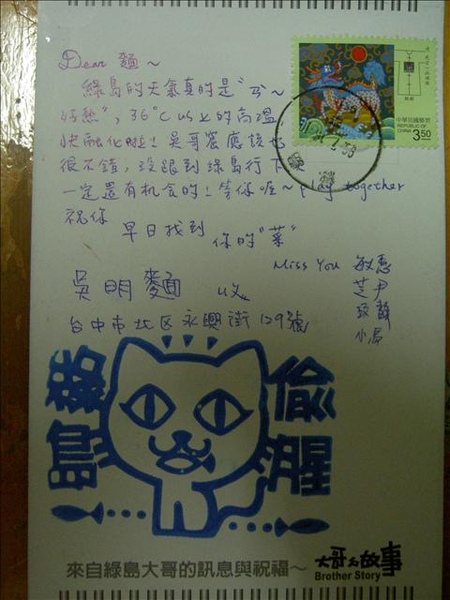 Dear 麵~
綠島的天氣真的是"ㄋ~
好熱",36°C以上的高溫,
快融化啦!吳哥窟應該也
很不錯,沒跟到綠島行下次
一定還有机会的!等你喔~play together
祝你
早日找到
你的"菜"
Miss You 敏惠
芝尹
小馬
吳明麵 收
台中市北区永興街129號
中華民國郵票
REPUBLIC OF CHINA
3.50
貓
偷腥
來自綠島大哥的訊息與祝福~
大哥的故事
Brother Story